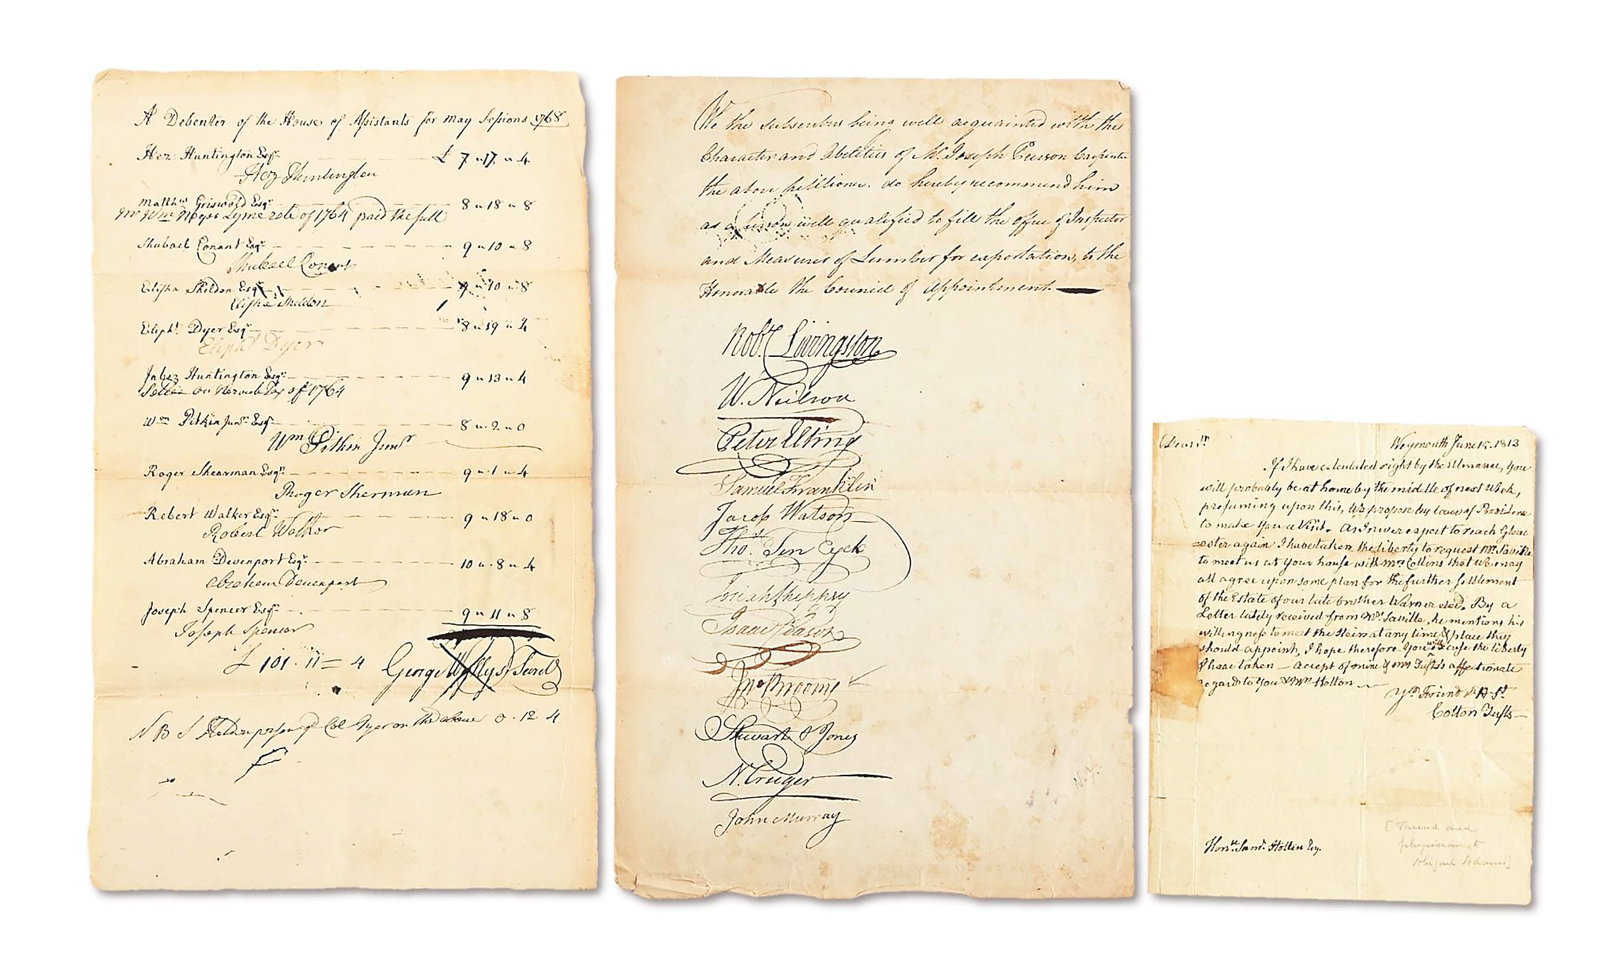 A Debenter of the House of Assistants for may Sessions 1768
Hez Huntington Esqr. £ 7 " 17 " 4
Hez Huntington
Matthw Griswold Esqr 8 " 18 " 8
Mr Wm Noyes Lyme rate of 1764 paid the full
Shubael Conant Esqr 9 " 10 " 8
Shubael Conant
Elisha Sheldon Esqr 9 " 10 " 8
Elisha Sheldon
Elipht. Dyer Esqr 8 " 19 " 4
Elipht Dyer
Jabez Huntington Esqr 9 " 13 " 4
on of 1764
Wm Pitkin Junr Esqr 8 " 2 " 0
Wm Pitkin Junr
Roger Shearman Esqr 9 " 1 " 4
Roger Sherman
Robert Walker Esqr 9 " 18 " 0
Robert Walker
Abraham Devenport Esqr 10 " 8 " 4
Abraham Davenport
Joseph Spencer Esqr 9 " 11 " 8
Joseph Spencer
£ 101 " 11 = 4 George Wyllys Secrety
N B Col Dyer on the above 0 . 12 4
We the subscribers being well acquainted with the
Character and Abilities of Mr. Joseph Pearson Carpenter
the above petitioner. do hereby recommend him
as a person well qualified to fill the office of Inspector
and Measurer of Lumber for exportation, to the
Honorable the Council of Appointment.
Robt. Livingston
W. Neilson
Peter Elting
Samuel Franklin
Jacob Watson
Thos. Ten Eyck
Isaac
Jno Broome
Stewart & Jones
N. Cruger
John Murray
N.Y.
Dear Sr. Weymouth June 15. 1813
If I have calculated right by the Almanac, you
will probably be at home by the middle of next Week,
presuming upon this, We propose by leave of Providence
to make you a Visit. As I never expect to reach Glouc
ester again I have taken the liberty to request Mr. Saville
to meet us at your house with Mrs Collins that We may
all agree upon some plan for the further settlement
of the Estate of our late brother Warner decd. By a
Letter lately received from Mr. Saville, he mentions his
willingness to meet the Heirs at any time & place they
should appoint, I hope therefore you will excuse the liberty
I have taken — accept of mine & Mrs Tufts's affectionate
regards to You & Mrs Holten
Yr. Friend & H St.
Cotton Tufts
Honble. Saml. Holten Esq.
[Friend and
physician to
Abigail Adams]